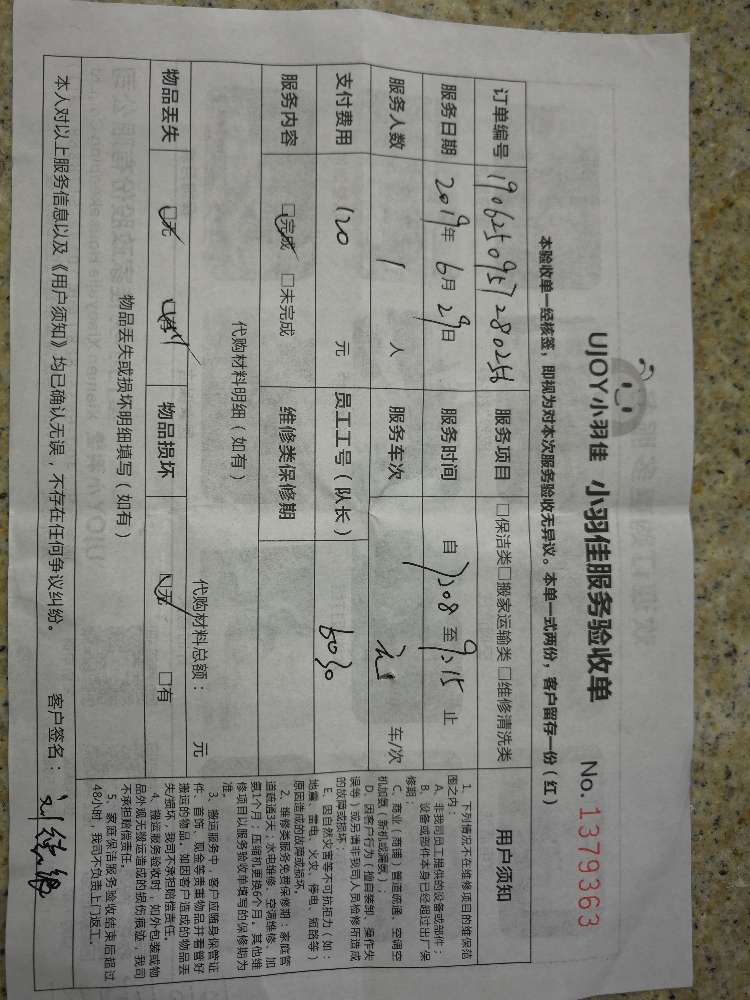 UJOY小羽佳 小羽佳服务验收单 No.1379363
本验收单一经核签，即视为对本次服务验收无异议。本单一式两份，客户留存一份（红）
订单编号 1906250957280256 服务项目 □保洁类□搬家运输类 □维修清洗类
服务日期 2019年 6月 29日 服务时间 自 至 9:15 止
服务人数 1 人 服务车次 车/次
支付费用 120 元 员工工号（队长） 6030
服务内容 □完成 □未完成 维修类保修期
代购材料明细（如有） 代购材料总额： 元
物品丢失 □无 □有 物品损坏 □无 □有
物品丢失或损坏明细填写（如有）
本人对以上服务信息以及《用户须知》均已确认无误，不存在任何争议纠纷。 客户签名：
用户须知
1、下列情况不在维修项目的维保范
围之内：
A、非我司员工提供的设备或部件；
B、设备或部件本身已经超过出厂保
修期；
C、商业（商铺）管道疏通、空调空
机加氨（新机或漏氨）；
D、因客户行为（擅自装卸、操作失
误等）或另请非我司人员检修所造成
的故障或损坏；
E、因自然灾害等不可抗拒力（如：
地震、雷电、火灾、停电、短路等）
原因造成的故障或损坏。
2、维修类服务免费保修期：家庭管
道疏通3天；水电维修、空调维修、加
氨1个月；压缩机更换6个月，其他维
修项目以服务验收单填写的保修期为
准。
3、搬运服务中，客户应随身保管证
件、首饰、现金等贵重物品并看管好
搬运的物品，如因客户造成的物品丢
失/损坏，我司不承担赔偿责任。
4、搬运服务验收时，如外包装或物
品外观无搬运造成的损伤痕迹，我司
不承担赔偿责任。
5、家庭保洁服务验收结束后超过
48小时，我司不负责上门返工。